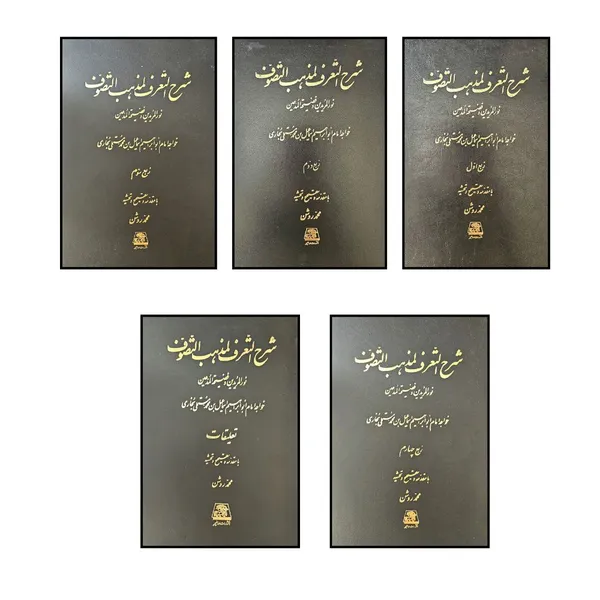 شرح التعرف لمذهب التصوف
نورالمریدین و فضیحة المدعین
خواجه امام ابو ابراهیم اسماعیل بن محمد مستملی بخاری
ربع اول
با مقدمه و تصحیح و تحشیه
محمد روشن
شرح التعرف لمذهب التصوف
نورالمریدین و فضیحة المدعین
خواجه امام ابو ابراهیم اسماعیل بن محمد مستملی بخاری
ربع دوم
با مقدمه و تصحیح و تحشیه
محمد روشن
شرح التعرف لمذهب التصوف
نورالمریدین و فضیحة المدعین
خواجه امام ابو ابراهیم اسماعیل بن محمد مستملی بخاری
ربع سوم
با مقدمه و تصحیح و تحشیه
محمد روشن
شرح التعرف لمذهب التصوف
نورالمریدین و فضیحة المدعین
خواجه امام ابو ابراهیم اسماعیل بن محمد مستملی بخاری
ربع چهارم
با مقدمه و تصحیح و تحشیه
محمد روشن
شرح التعرف لمذهب التصوف
نورالمریدین و فضیحة المدعین
خواجه امام ابو ابراهیم اسماعیل بن محمد مستملی بخاری
تعلیقات
با مقدمه و تصحیح و تحشیه
محمد روشن